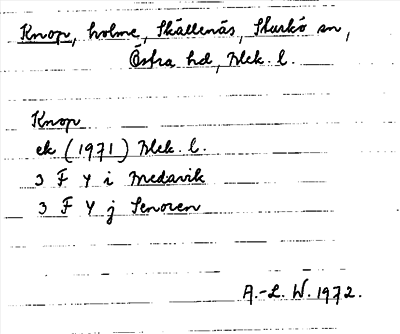 Knop, holme, Skällenäs, Sturkö sn,
Östra hd, Blek. l.
Knop
ek (1971) Blek. l.
3 F Y i Medavik
3 F Y j Senoren
A.-L. W. 1972.